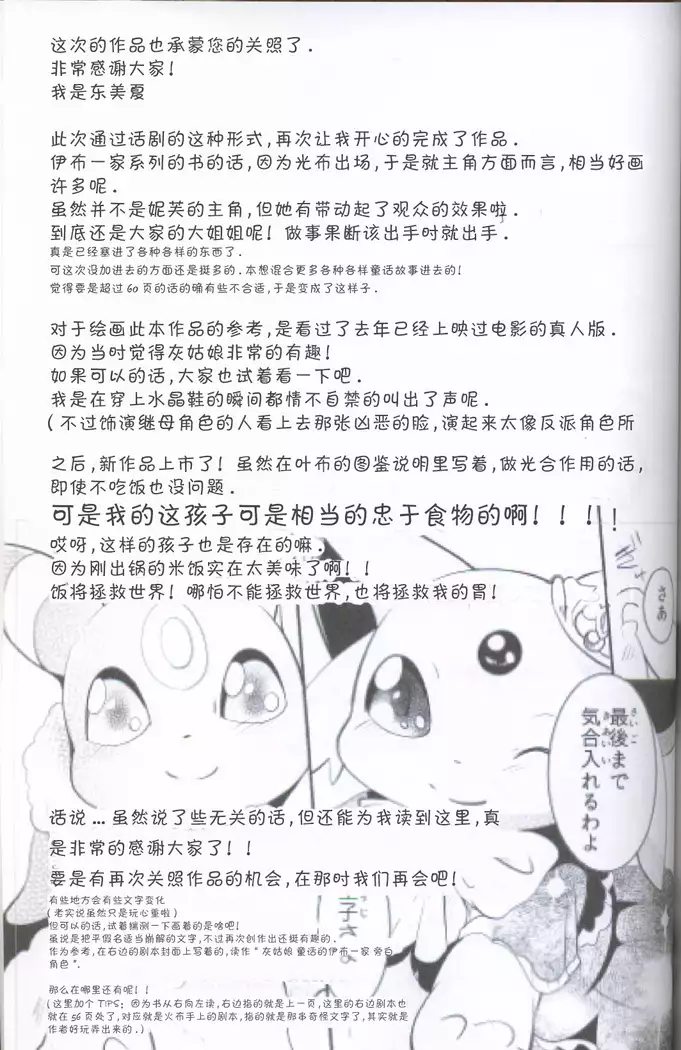 这次的作品也承蒙您的关照了.
非常感谢大家!
我是东美夏
此次通过话剧的这种形式,再次让我开心的完成了作品.
伊布一家系列的书的话,因为光布出场,于是就主角方面而言,相当好画
许多呢.
虽然并不是妮芙的主角,但她有带动起了观众的效果啦.
到底还是大家的大姐姐呢! 做事果断该出手时就出手.
真是已经塞进了各种各样的东西了.
可这次没加进去的方面还是挺多的. 本想混合更多各种各样童话故事进去的!
觉得要是超过 60 页的话的确有些不合适,于是变成了这样子.
对于绘画此本作品的参考,是看过了去年已经上映过电影的真人版.
因为当时觉得灰姑娘非常的有趣!
如果可以的话,大家也试着看一下吧.
我是在穿上水晶鞋的瞬间都情不自禁的叫出了声呢.
(不过饰演继母角色的人看上去那张凶恶的脸,演起来太像反派角色所
之后,新作品上市了! 虽然在叶布的图鉴说明里写着,做光合作用的话,
即使不吃饭也没问题.
可是我的这孩子可是相当的忠于食物的啊!!!!
哎呀,这样的孩子也是存在的嘛.
因为刚出锅的米饭实在太美味了啊!!
饭将拯救世界! 哪怕不能拯救世界,也将拯救我的胃!
さあ
最後まで
気合入れるわよ
さいご
きあいい
话说 ... 虽然说了些无关的话,但还能为我读到这里,真
是非常的感谢大家了!!
要是有再次关照作品的机会,在那时我们再会吧!
有些地方会有些文字变化
(老实说虽然只是玩心重啦)
但可以的话,试着揣测一下画着的是啥吧!
虽说是把平假名适当崩解的文字,不过再次创作出还挺有趣的.
作为参考,在右边的剧本封面上写着的,读作 "灰姑娘 童话的伊布一家 旁白
角色".
那么在哪里还有呢!!
(这里加个 TIPS: 因为书从右向左读,右边指的就是上一页,这里的右边剧本也
就在 56 页处了,对应就是火布手上的剧本,指的就是那串奇怪文字了,其实就是
作者好玩弄出来的.)
字さよ